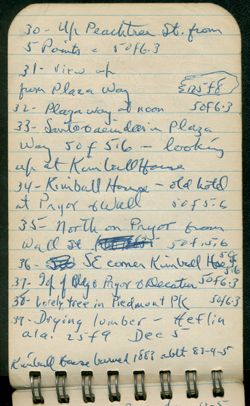 30 - Up Peachtree St. from
5 Points - 50 f 6.3
31 - View up
from Plaza Way
32 - Plaza way at noon 50 f 6.3
33 - in Plaza
Way 50 f 5.6 - looking
up at Kimball House
34 - Kimball House - old hotel
at Pryor & Wall 50 f 5.6
35 - North on Pryor from
Wall St 50 f 5.6
36 - SE corner Kimball Hse
37 - of Bldg @ Pryor & Decatur 50 f 6.3
38 - Lovely tree in Piedmont Pk 50 f 6.3
39 - Drying lumber - Heflin
ala. 25 f 9 Dec 5
Kimball House burned 1883 rblt 83-4-5